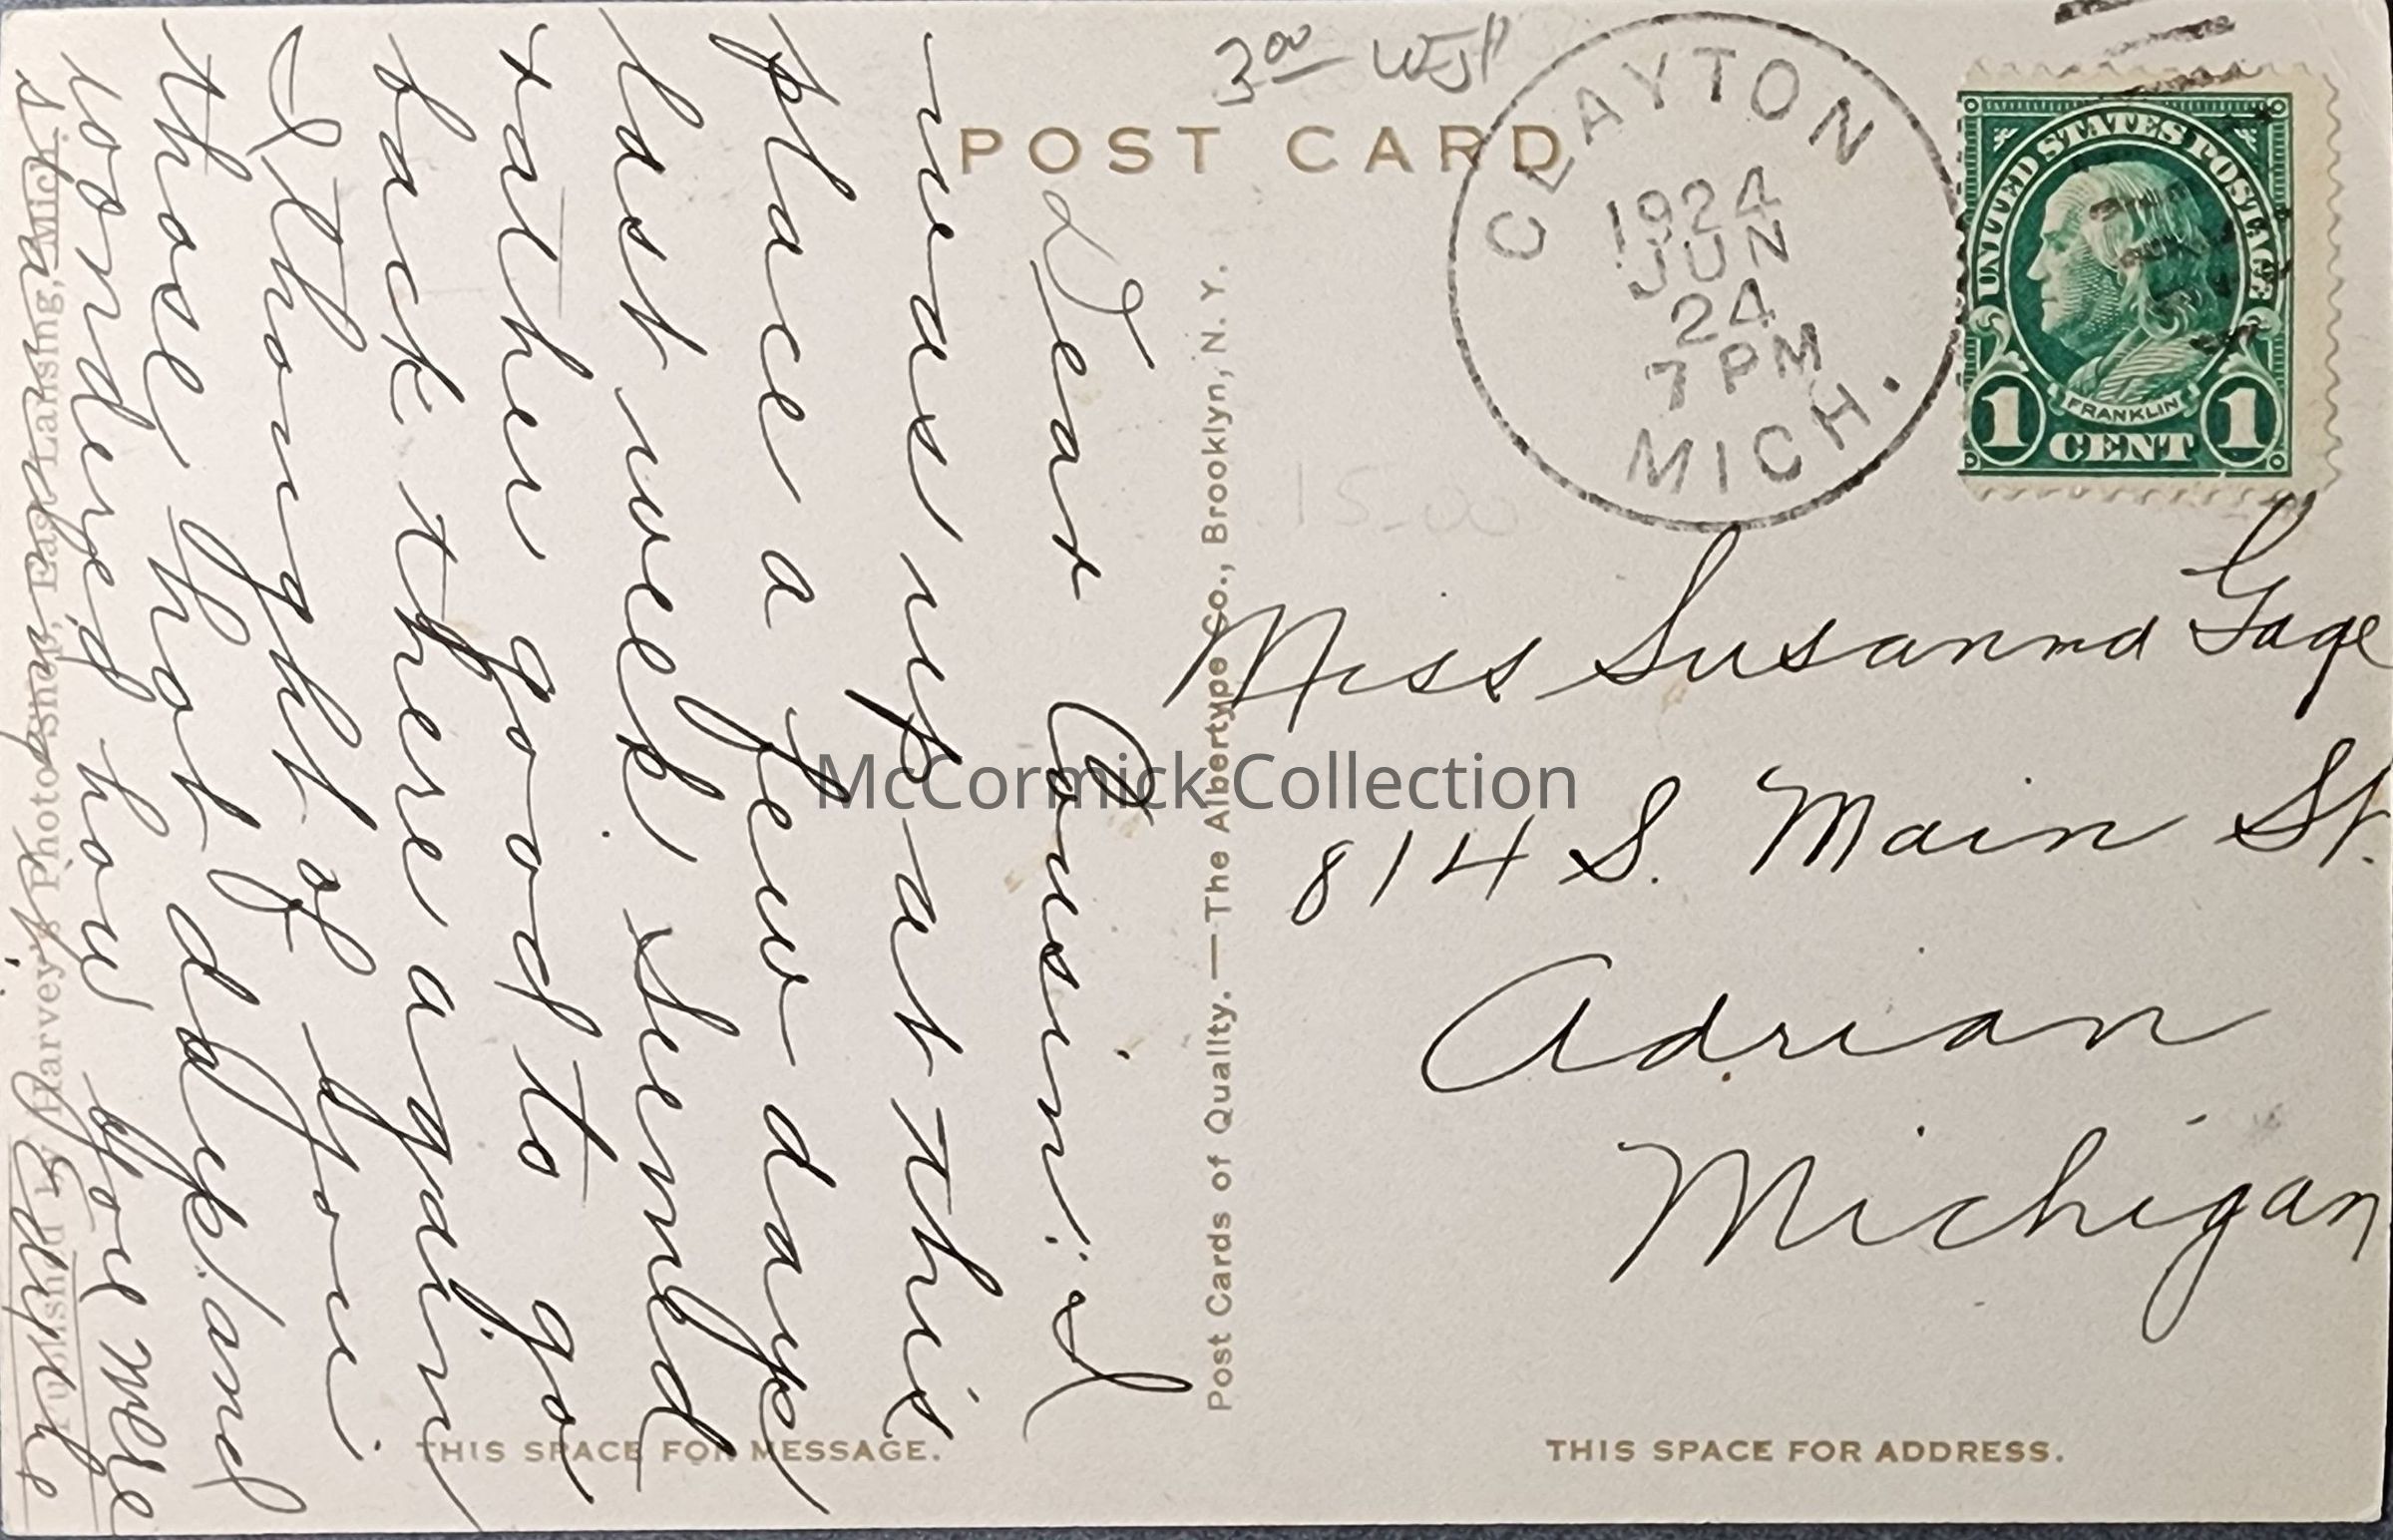 3.00 WEJP
POST CARD
CLAYTON
1924
JUN
24
7 PM
MICH.
UNITED STATES POSTAGE
FRANKLIN
1 CENT 1
15-00
Dear Cousin: I
was up at this
place a few days
last week. Seemed
rather good to go
back there again.
I thought of you
those hot days, and
wondered how you were
Published by Harvey's Photo Shop, East Lansing, Mich.
Post Cards of Quality. — The Albertype Co., Brooklyn, N. Y.
Miss Susanna Gage
814 S. Main St.
Adrian
Michigan
THIS SPACE FOR MESSAGE.
THIS SPACE FOR ADDRESS.
McCormick Collection